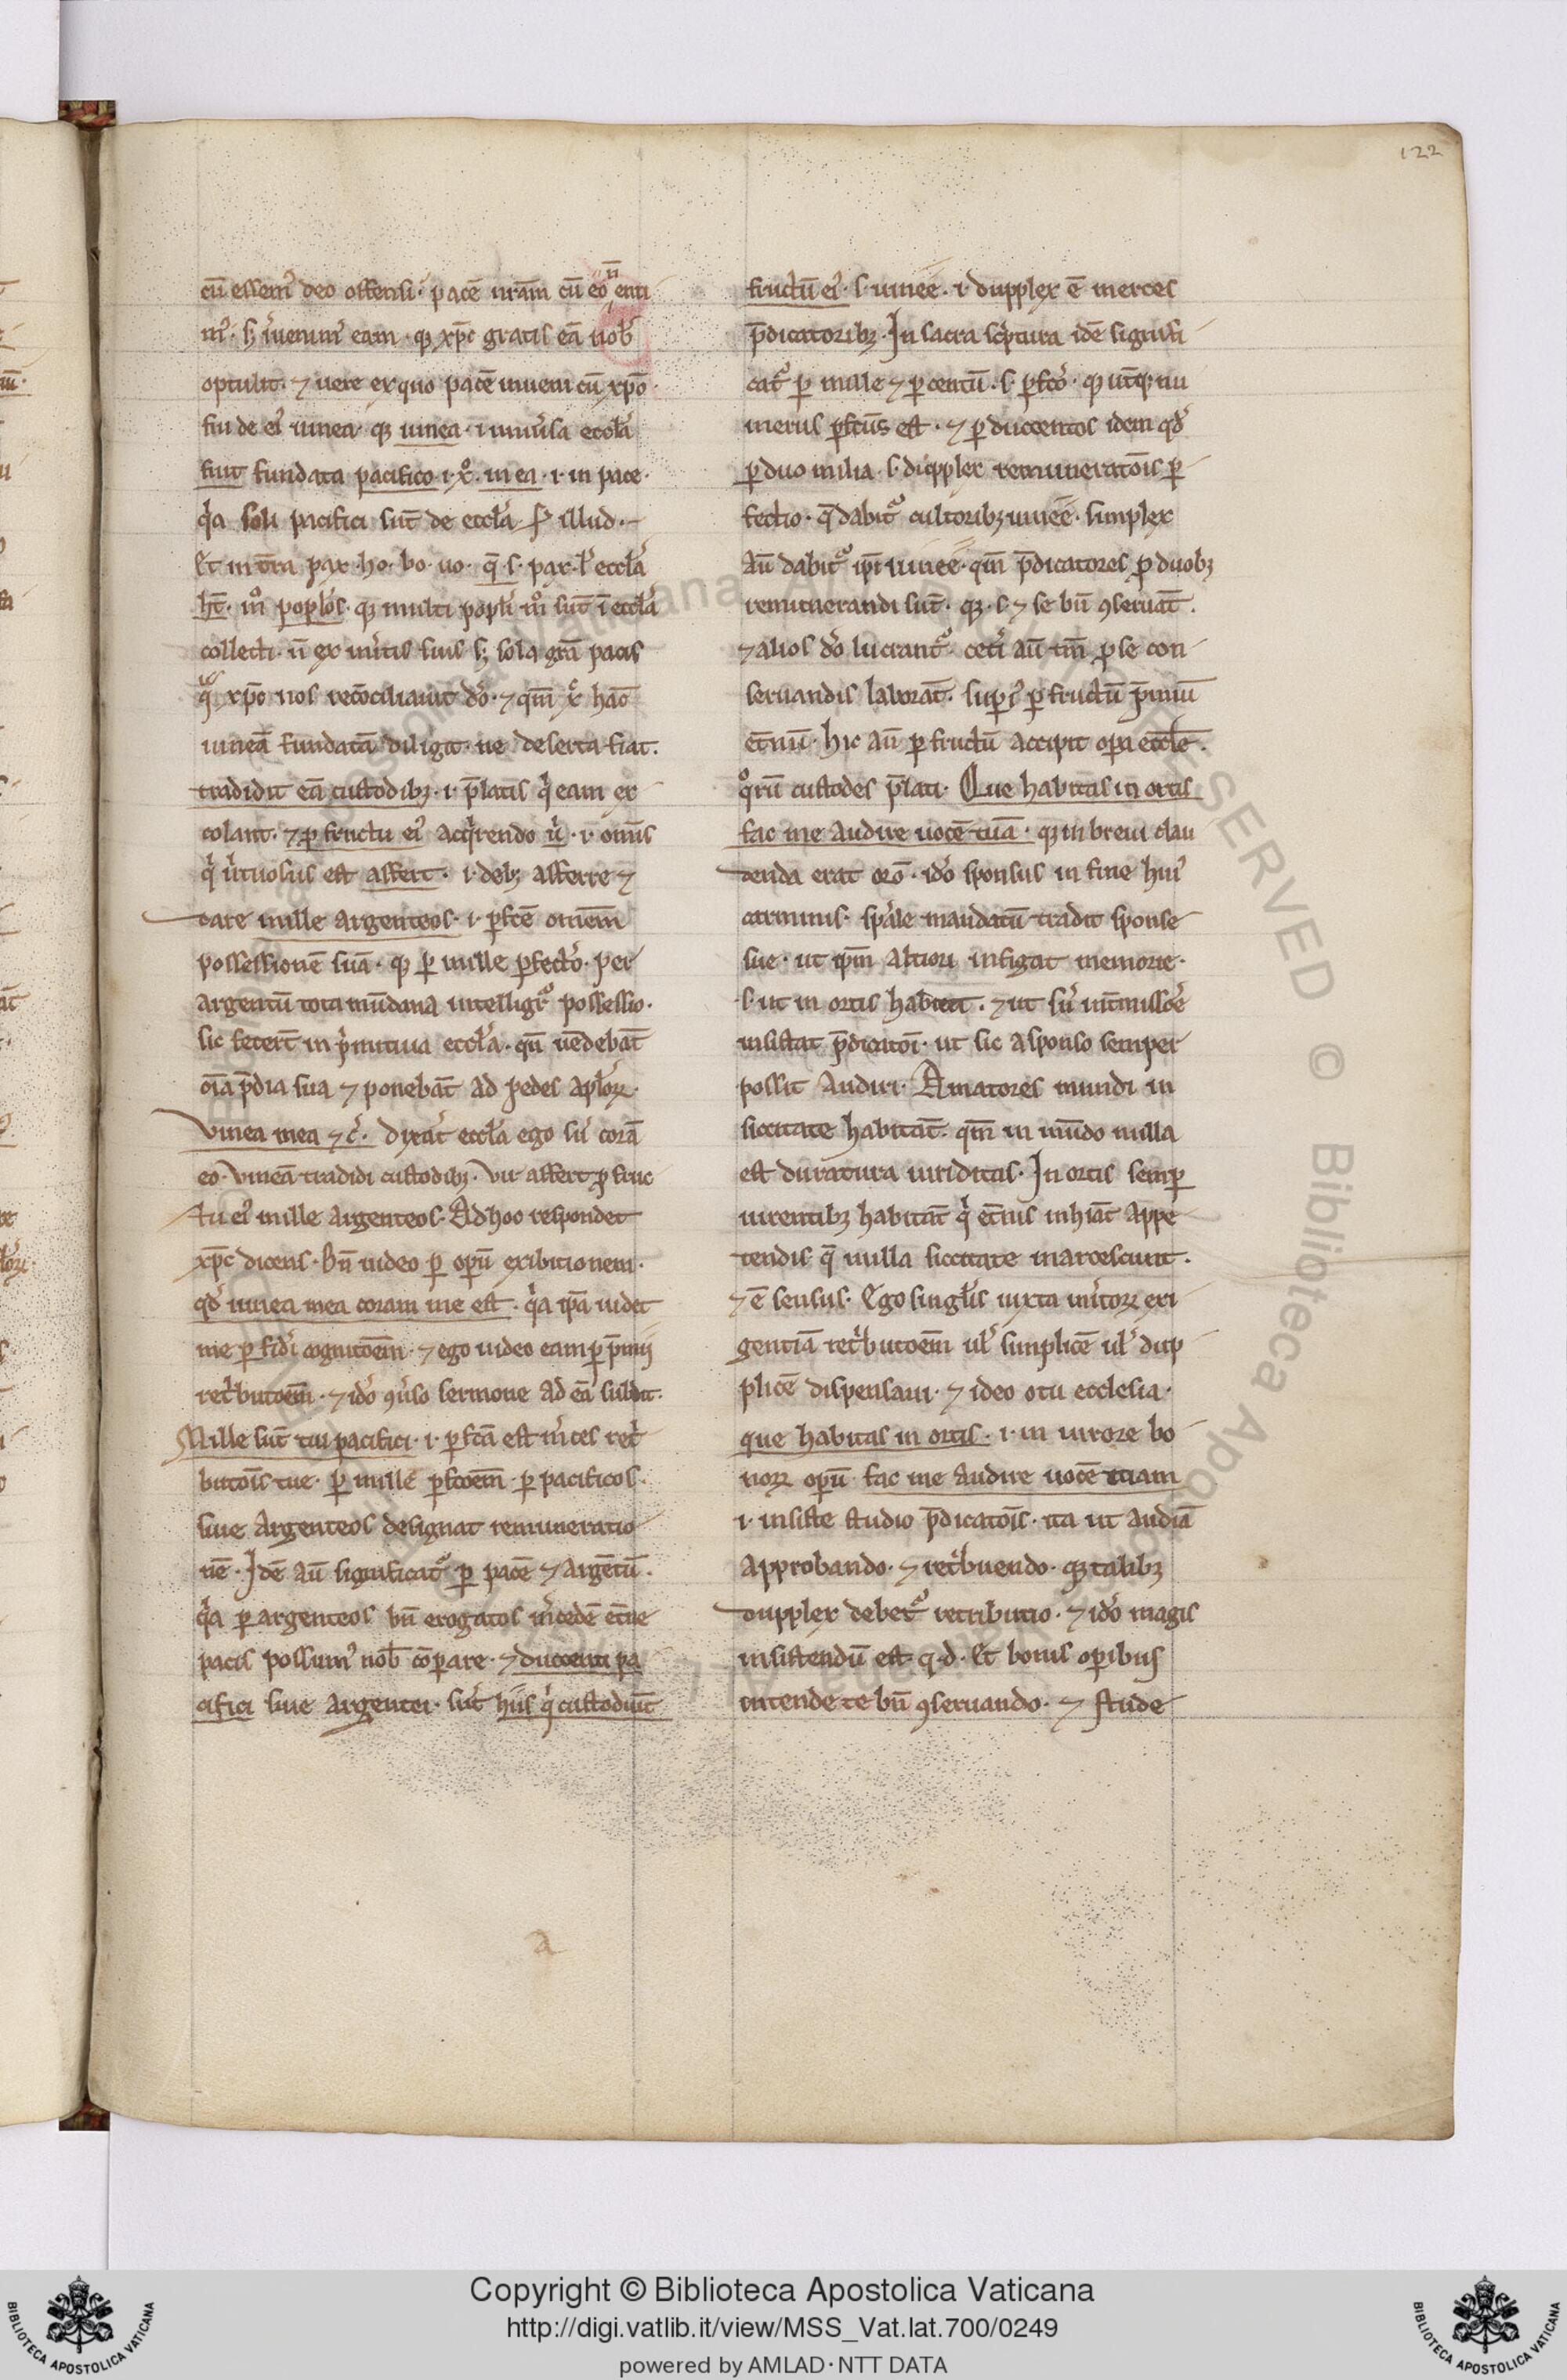 122
cū essem᷒ deo offensi· pacē nr̄am cū eo n̄ emi
m᷒· s; īuenim᷒ eam· qꝫ xp̄c gratis eā nob̄
optulit· ⁊ uere ex quo pacē inueni cū xp̄o·
fui de ei᷒ uinea· qꝫ uinea· i· uniu̾sa eccl̾a
fuit fundata pacifico· i· xº· in ea· i· in pace·
qͥa soli pacifici sūt de eccl̾a· illud·
Et in t̄ra pax· ho· bo· uo· q̄· s· pax· l̾ eccl̾a
ht̄· mͦ popl̾os· qꝫ multi popl̾i mͦ sūt ī eccl̾a
collecti· n̄ ex m̾itis suis s; sola gr̄a pacis
qᵃ xp̄c nos recōciliauit dō· ⁊ qm̄ x̾ hāc
uineā fundatā diligit· ne deserta fiat·
tradidit eā custodibꝫ· i· p̄latis qͥ eam ex
colant· ⁊ ꝓ fructu ei᷒ acqͥrendo uͥ· i· om̄is
qͥ uͥtuosus est affert· i· debꝫ afferre ⁊
dare mille argenteos· i· ꝑfcē om̄em
possessionē suā· qꝫ ꝑ mille ꝑfectō· per
argentū tota mūdana intelligit᷒ possessio·
sic fecer̄t in pͥmitiua eccl̾a· qn̄ uēdebāt
oīa p̄dia sua ⁊ ponebāt ad pedes apl̾oꝝ·
Vinea mea ⁊ c̾· dixāt eccl̾a ego su̾ corā
eo· vineā tradidi custodibꝫ· vir affert ꝓ fruc
tu ei᷒ mille argenteos· Ad hoc respondet
xp̄c dicens· bn̄ uideo ꝑ opū exibitionem·
qd̾ uinea mea coram me est· qͥa ip̄a uidet
me ꝑ fidei cognitōem· ⁊ ego uideo eam ꝑ p̄mij
retͥbutōem· ⁊ idō ꝯu̾so sermone ad eā subdit·
Mille sūt tui pacifici· i· ꝑfcā est m̾ces retͥ
butōis tue· ꝑ mille ꝑfcōem· ꝑ pacificos
siue argenteos designat remuneratio
nē· Idē aū significat᷒ ꝑ pacē ⁊ argētū·
qͥa ꝑ argenteos bn̄ erogatos m̾cedē et̄ne
pacis possum᷒ nob̄ cōꝑare· ⁊ ducenti pa
cifici siue argentei· sūt hiis qͥ custodiūt
fructū ei᷒· s· uinee· i· dupplex ē merces
p̄dicatoribꝫ· In sacra scͥptura idē signifi
cat᷒ ꝑ mille ⁊ ꝑ centū· s· ꝑfcō· qꝫ ut̾qꝫ nu
merus ꝑfcūs est· ⁊ ꝑ duccentos idem qd̾
ꝑ duo milia· s· dupplex remuneratōis ꝑ
fectio· q̄ dabit᷒ cultoribꝫ uinee· simplex
aū dabit᷒ ip̄i uinee· qm̄ p̄dicatores ꝓ duobꝫ
remunerandi sūt· qꝫ· s· ⁊ se bn̄ ꝯseruāt·
⁊ alios dō lucrant᷒· cet̾i aū tm̄ ꝓ se con
seruandis laborāt· suꝑi᷒ ꝑ fructū p̄miū
et̄nū· hic aū ꝑ fructū accipit oꝑa eccl̄e·
qͦrū custodes p̄lati· Que habitas in ortis
fac me audire uocē tuā· qꝫ in breui clau
denda erat or̄o· idō sponsus in fine hui᷒
carminis· sp̄ale mandatū tradit sponse
sue· ut ip̄m altiori infigat memorie·
s· ut in ortis habitet· ⁊ ut sn̄ int̄missiōe
insistat p̄dicatōi· ut sic a sponso semper
possit audiri· Amatores mundi in
siccitate habitāt· qm̄ in mūdo nulla
est duratura uiriditas· In ortis semꝑ
uirentibꝫ habitāt qͥ et̄nis inhiāt appe
tendis q̄ nulla siccitate marcescunt·
⁊ ē sensus· Ego singl̾is iuxta m̾itoꝝ exi
gentiā retͥbutōem ul̾ simplicē ul̾ dup
plicē dispensaui· ⁊ ideo o tu ecclesia·
que habitas in ortis· i· in uirore bo
noꝝ opū fac me audire uocē tuam
i· insiste studio p̄dicatōis· ita ut audiā
approbando· ⁊ retͥbuendo· qꝫ talibꝫ
dupplex debet᷒ retributio· ⁊ idō magis
insistendū est q· d· Et bonis oꝑibus
intende te bn̄ ꝯseruando· ⁊ stude
a
Copyright © Biblioteca Apostolica Vaticana
http://digi.vatlib.it/view/MSS_Vat.lat.700/0249
powered by AMLAD·NTT DATA
BIBLIOTECA APOSTOLICA VATICANA
BIBLIOTECA APOSTOLICA VATICANA